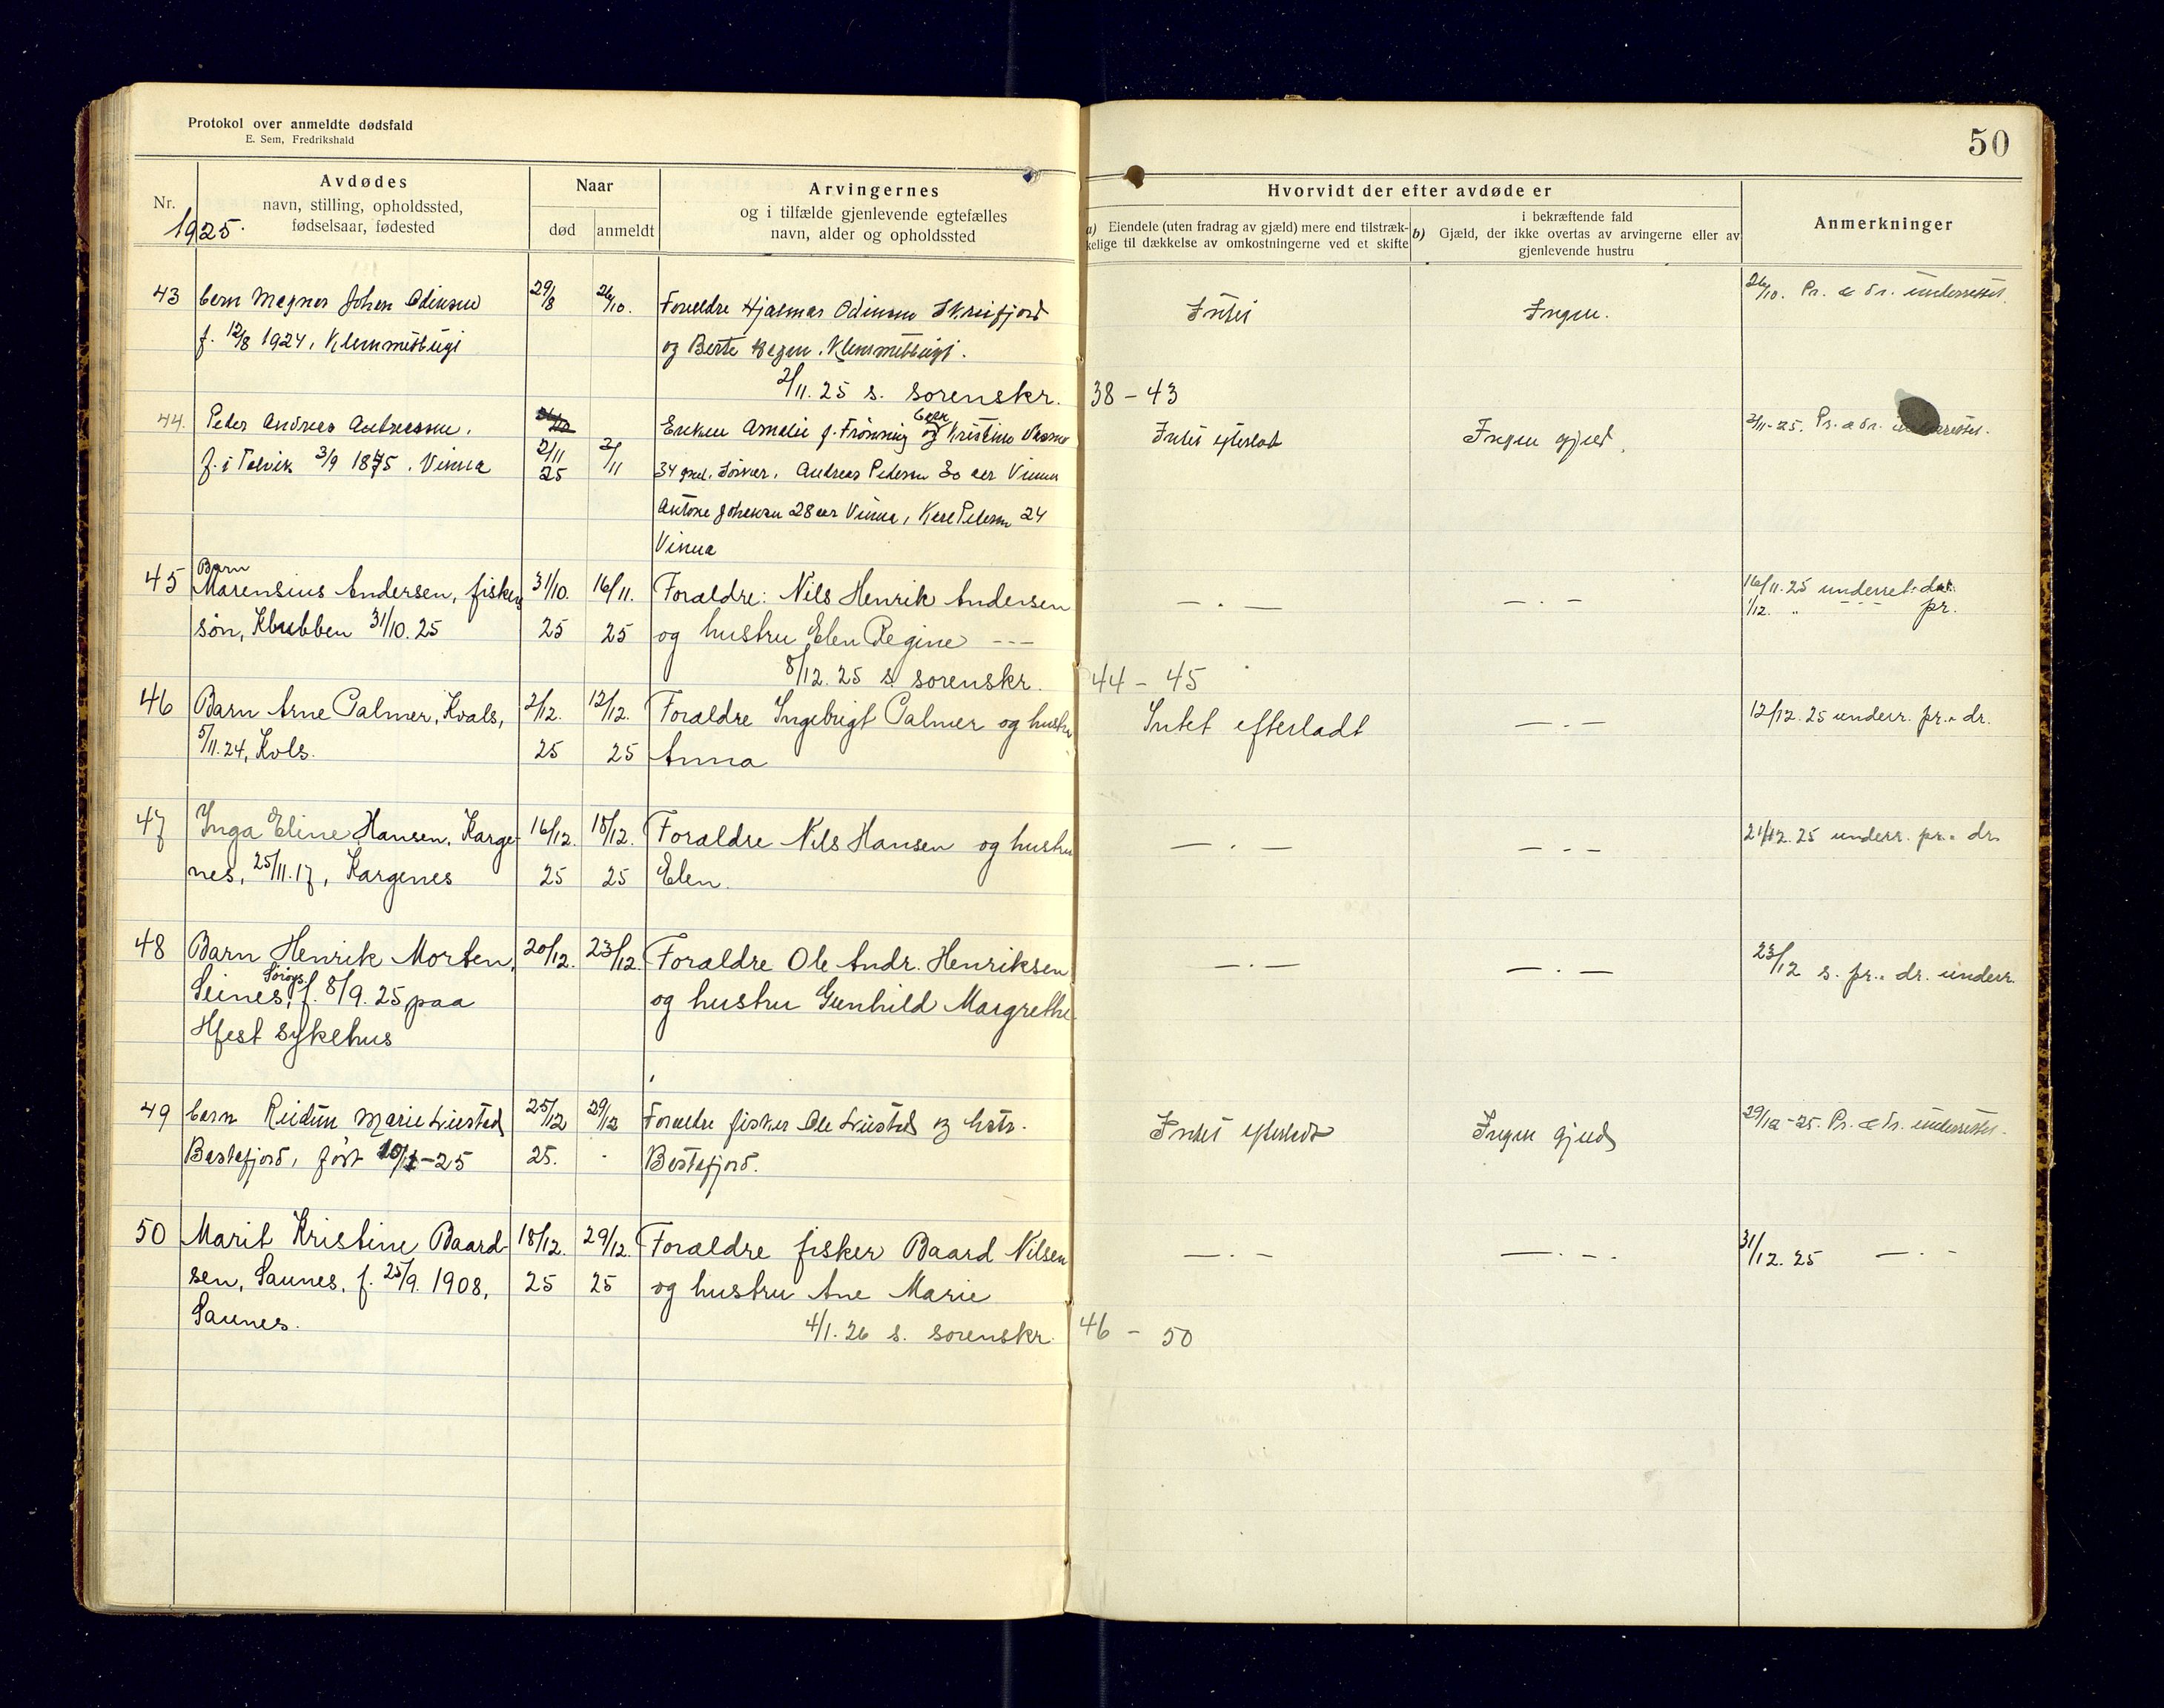 Protokol over anmeldte dødsfald
E. Sem, Fredrikshald
50
Nr.
1925.
Avdødes
navn, stilling, opholdssted,
fødselsaar, fødested
Naar
død
anmeldt
Arvingernes
og i tilfælde gjenlevende egtefælles
navn, alder og opholdssted
Hvorvidt der efter avdøde er
a) Eiendele (uten fradrag av gjæld) mere end tilstræk-
kelige til dækkelse av omkostningerne ved et skifte
b)
i bekræftende fald
Gjæld, der ikke overtas av arvingerne eller av
gjenlevende hustru
Anmerkninger
43 barn Magnor Johan Odinsen 29/8 26/10. Forældre Hjalmar Odinsen
f. 12/8 1924, og Berte
Intet Ingen. 26/10. Pr. & dr. underrettet.
2/11. 25 s. sorenskr. 38 - 43
44. Peder Andreas Andreassen. 2/11 25 2/11 Enken Amalie f. Frönning og Kristine
f. i Talvik 3/9 1875. Vinna 34 Andreas Pedersen 30 aar Vinna
Antone Johansen 28 aar Vinna, Karl Pedersen 24
Vinna
Intet efterladt Ingen gjæld. 2/11-25. Pr. & dr. underrettet.
45 Barn
Marensius Andersen, fisker 31/10. 16/11. Forældre: Nils Henrik Andersen
søn, Klubben 31/10. 25 25 25 og hustru Elen Regine ---
— . — — . — 16/11. 25 underret. dr.
1/12. " - - - pr.
8/12. 25 s. sorenskr. 44 - 45
46 Barn Arne Palmer, Kvals, 2/12. 12/12. Forældre Ingebrigt Palmer og hustru
5/11. 24, Kvls. 25 25 Anna
Intet efterladt — . — 12/12. 25 underr. pr. " dr.
47 Inga Eline Hansen, Karge- 16/12. 18/12. Forældre Nils Hansen og hustru
nes, 25/11. 17, Kargenes 25 25 Elen.
— . — — . — 21/12. 25 underr. pr. " dr.
48 Barn Henrik Morten, 20/12. 23/12. Forældre Ole Andr. Henriksen
Seines, Sörøys. f. 8/9. 25 paa og hustru Gunhild Margrethe
Hfest sykehus
— . — — . — 23/12 s. pr. " dr. underr.
49 barn Reidun Marie Liestad 25/12 29/12 Forældre fisker Ole Liestad og hstr.
født 10/11-25 25.
Intet efterladt Ingen gjæld 29/12-25. Pr. & dr. underrettet.
50 Marit Kristine Baard- 18/12. 29/12. Forældre fisker Baard Nilsen
sen, Saunes, f. 25/9. 1908, 25 25 og hustru Ane Marie
Saunes.
— . — — . — . 31/12. 25 — . -
4/1. 26 s. sorenskr. 46 - 50